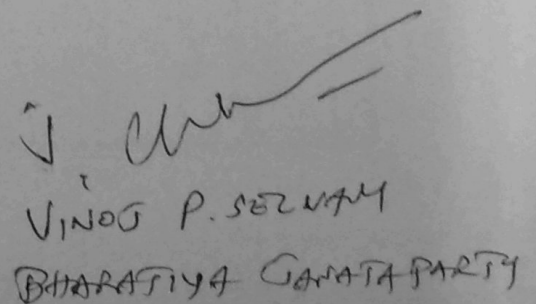 VINOJ P. SELVAM
BHARATIYA JANATA PARTY